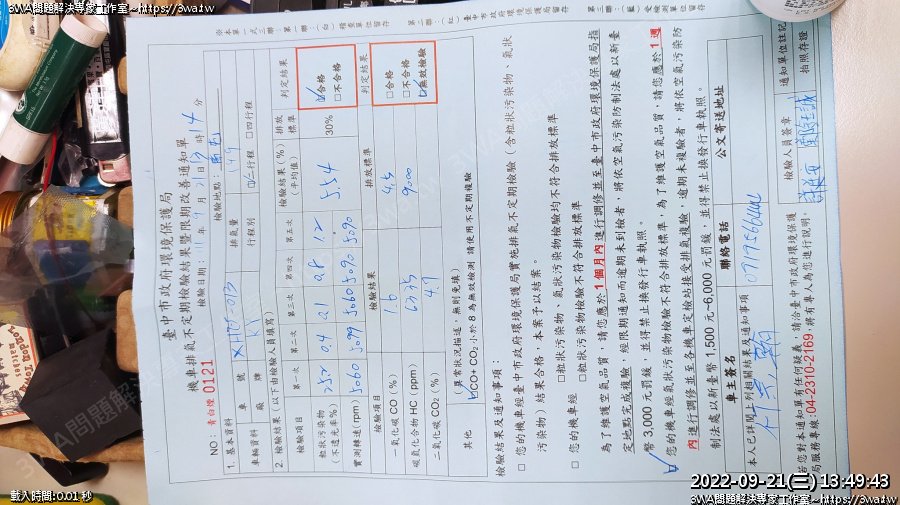 3WA問題解決專家工作室~https://3wa.tw
3WA問題解決專家工作室~https://3wa.tw
※本單一式三聯 第一聯:(白)稽查單位留存 第二聯:(紅)臺中市政府環境保護局留存 第三聯:(藍)受檢測單位留存
臺中市政府環境保護局
機車排氣不定期檢驗結果暨限期改善通知單
NO:青白煙 0121
檢驗日期:111年9月21日13時14分
1. 基本資料
檢驗地點:
車輛資料
車號
廠牌
排氣量
149
行程別
☑二行程 □四行程
2. 檢驗結果(以下由檢驗人員填寫)
檢驗項目
第一次
第二次
第三次
第四次
第五次
檢驗結果(%)
(平均值)
排放
標準
判定結果
粒狀污染物
(不透光率%)
0.4
0.8
1.2
5.54
30%
☑合格
□不合格
實測轉速(rpm)
5060
5099
5060
5090
5090
檢驗項目
檢驗結果
排放標準
判定結果
一氧化碳 CO (%)
1.6
4.5
□合格
□不合格
☑無效檢驗
碳氫化合物 HC (ppm)
6335
9000
二氧化碳 CO₂ (%)
4.7
其他
(異常狀況描述,無則免填)
☑CO+CO₂小於8為無效檢測 請使用不定期複驗
檢驗結果及通知事項:
□您的機車經臺中市政府環境保護局實施排氣不定期檢驗(含粒狀污染物、氣狀
污染物)結果合格,本案予以結案。
□您的機車經
□粒狀污染物、氣狀污染物檢驗均不符合排放標準
□粒狀污染物檢驗不符合排放標準
為了維護空氣品質,請您應於1個月內進行調修並至臺中市政府環境保護局指
定地點完成複驗,經限期通知而逾期未到檢者,將依空氣污染防制法處以新臺
幣3,000元罰鍰,並得禁止換發行車執照。
☑您的機車經氣狀污染物檢驗不符合排放標準,為了維護空氣品質,請您應於1週
內進行調修並至各機車定檢站接受排氣複驗,逾期未複驗者,將依空氣污染防
制法處以新臺幣1,500元~6,000元罰鍰,並得禁止換發行車執照。
車主簽名
聯絡電話
公文寄送地址
本人已詳閱下列相關結果及通知事項
若您對本通知單有任何疑義,請洽臺中市政府環境保護
局服務專線:04-2310-2169,將有專人為您進行說明。
檢驗人員簽章
通知單位註記
拍照存證
2022-09-21(三) 13:49:43
載入時間:0.01 秒
3WA問題解決專家工作室~https://3wa.tw